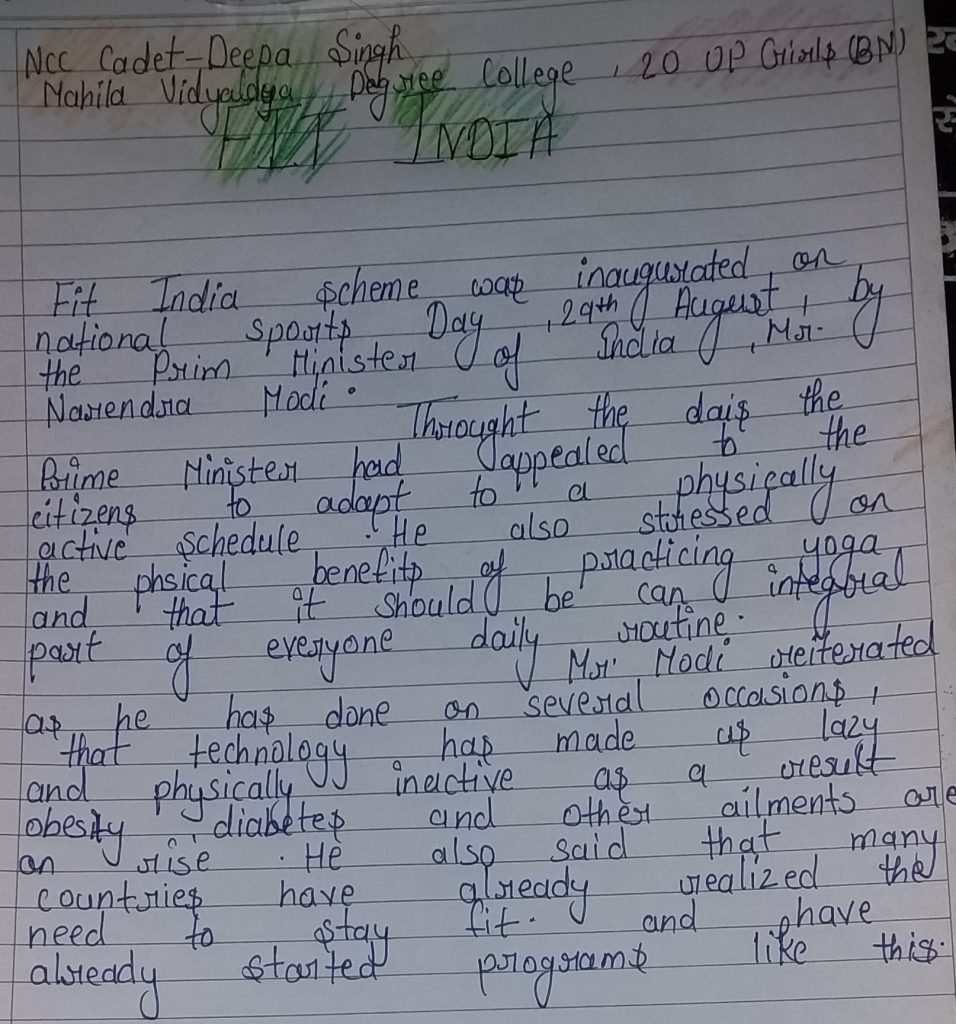 Ncc Cadet-Deepa Singh
Mahila Vidyaldya Degree College , 20 UP Girls (BN)
FIT INDIA
Fit India scheme was inaugurated on
national sports Day , 29th August , by
the Prim Minister of India , Mr.
Narendra Modi.
Throught the dais the
Prime Minister had appealed to the
citizens to adapt to a physically
active schedule . He also stressed on
the phsical benefits of practicing yoga
and that it should be can integral
part of everyone daily routine.
Mr. Modi reiterated
as he has done on several occasions ,
that technology has made us lazy
and physically inactive as a result
obesity , diabetes and other ailments are
on rise . He also said that many
countries have already realized the
need to stay fit. and have
already started programs like this.